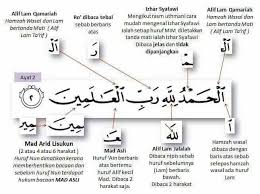 Alif Lam Qamariah
Hamzah Wasal dan Lam
bertanda Mati ( Alif
Lam Ta'rif )
Ro' dibaca tebal
sebab berbaris
atas
Izhar Syafawi
Mengikut rasm uthmani cara
mudah mengenal Izhar Syafawi
ialah setiap huruf Mim diletakkan
tanda mati ialah Izhar Syafawi
Dibaca jelas dan tidak
dipanjangkan
Alif Lam Qamariah
Hamzah Wasal dan Lam
bertanda Mati ( Alif
Lam Ta'rif )
Ayat 2
ٱلْحَمْدُ لِلَّهِ رَبِّ ٱلْعَٰلَمِينَ ٢
Mad Arid Lisukun
(2 atau 4 atau 6 harakat )
Huruf Nun dimatikan kerana
memberhentikan bacaan dan
sebelum huruf Nun terdapat
hukum bacaan MAD ASLI
Mad Asli
Huruf 'Ain berbaris
atas bertemu
huruf Alif kecil
Mad. Dibaca 2
harakat saja.
Alif Lam Jalalah
Dibaca nipis sebab
huruf sebelumnya
(Lam) berbaris
bawah.
Dibaca 2 harakat.
Hamzah wasal
dibaca dengan
baris atas sebab
selepas hamzah
wasal ada huruf
Lam